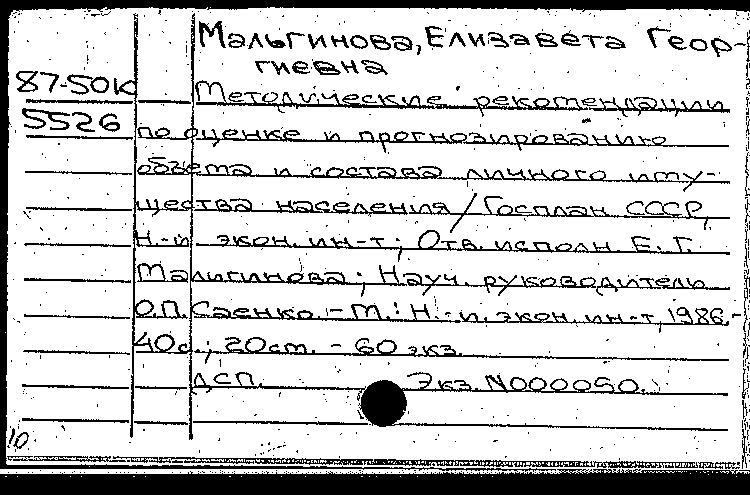 Мальгинова, Елизавета Геор-
гиевна
87-50к
Методические рекомендации
5526
по оценке и прогнозированию
объема и состава личного иму-
щества населения / Госплан СССР,
Н.-и. экон. ин-т; Отв. исполн Е. Г.
Малигинова; Науч. руководитель
О.П. Саенко. - М.: Н.-и. экон. ин-т, 1986.-
40с.; 20см. - 60 экз.
ДСП. Экз. N000050.
10